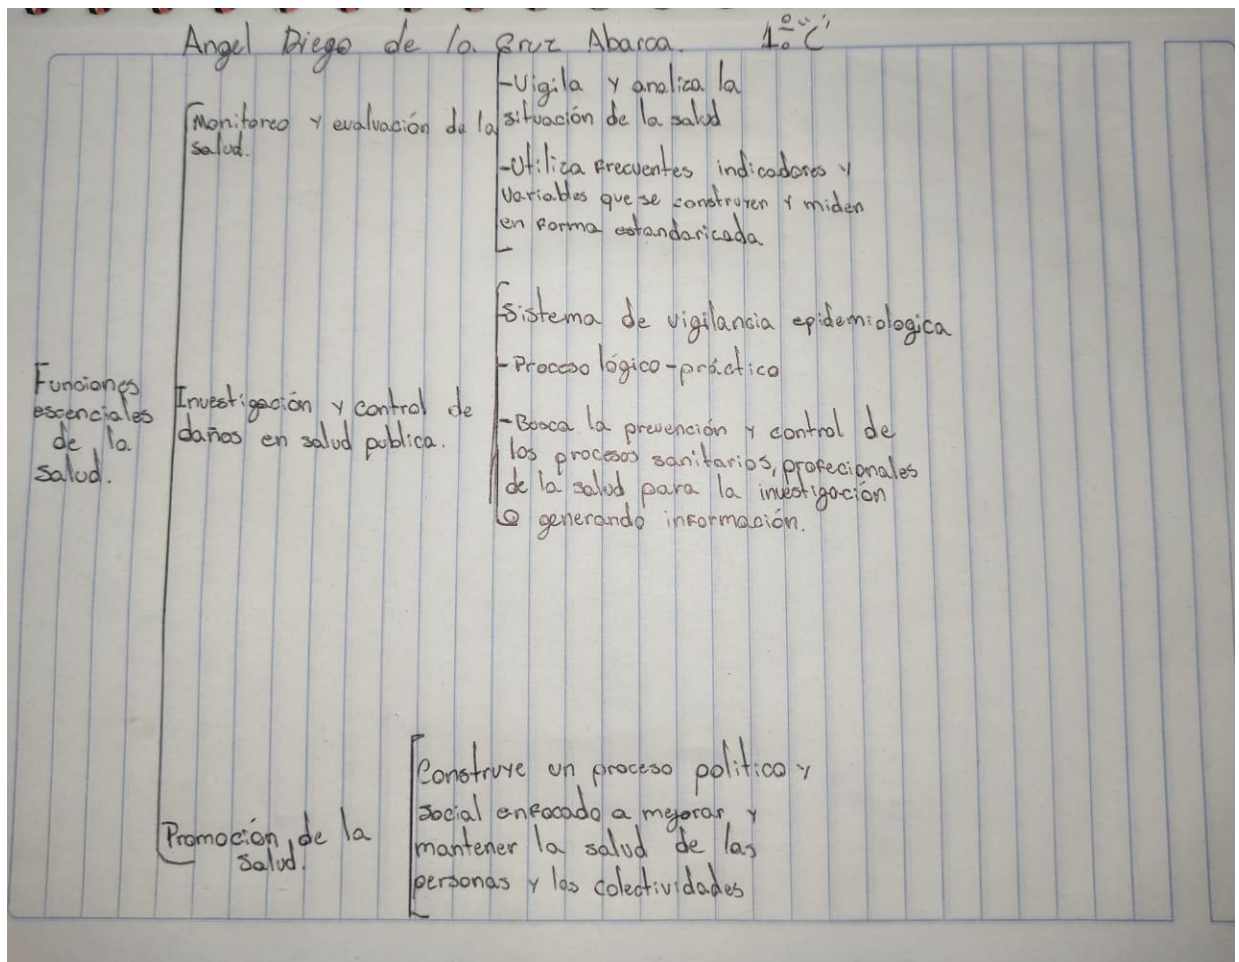 Angel Diego de la Cruz Abarca. 1º "C"
Monitoreo y evaluación de la
salud.
-Vigila y analiza la
situación de la salud
-Utiliza frecuentes indicadores y
variables que se construyen y miden
en forma estandaricada
Funciones
escenciales
de la
salud.
Investigación y control de
daños en salud publica.
Sistema de vigilancia epidemiologica
-Proceso lógico-práctico
-Busca la prevención y control de
los procesos sanitarios, profecionales
de la salud para la investigación
generando información.
Promoción de la
Salud.
Construye un proceso politico y
social enfocado a megorar y
mantener la salud de las
personas y las colectividades